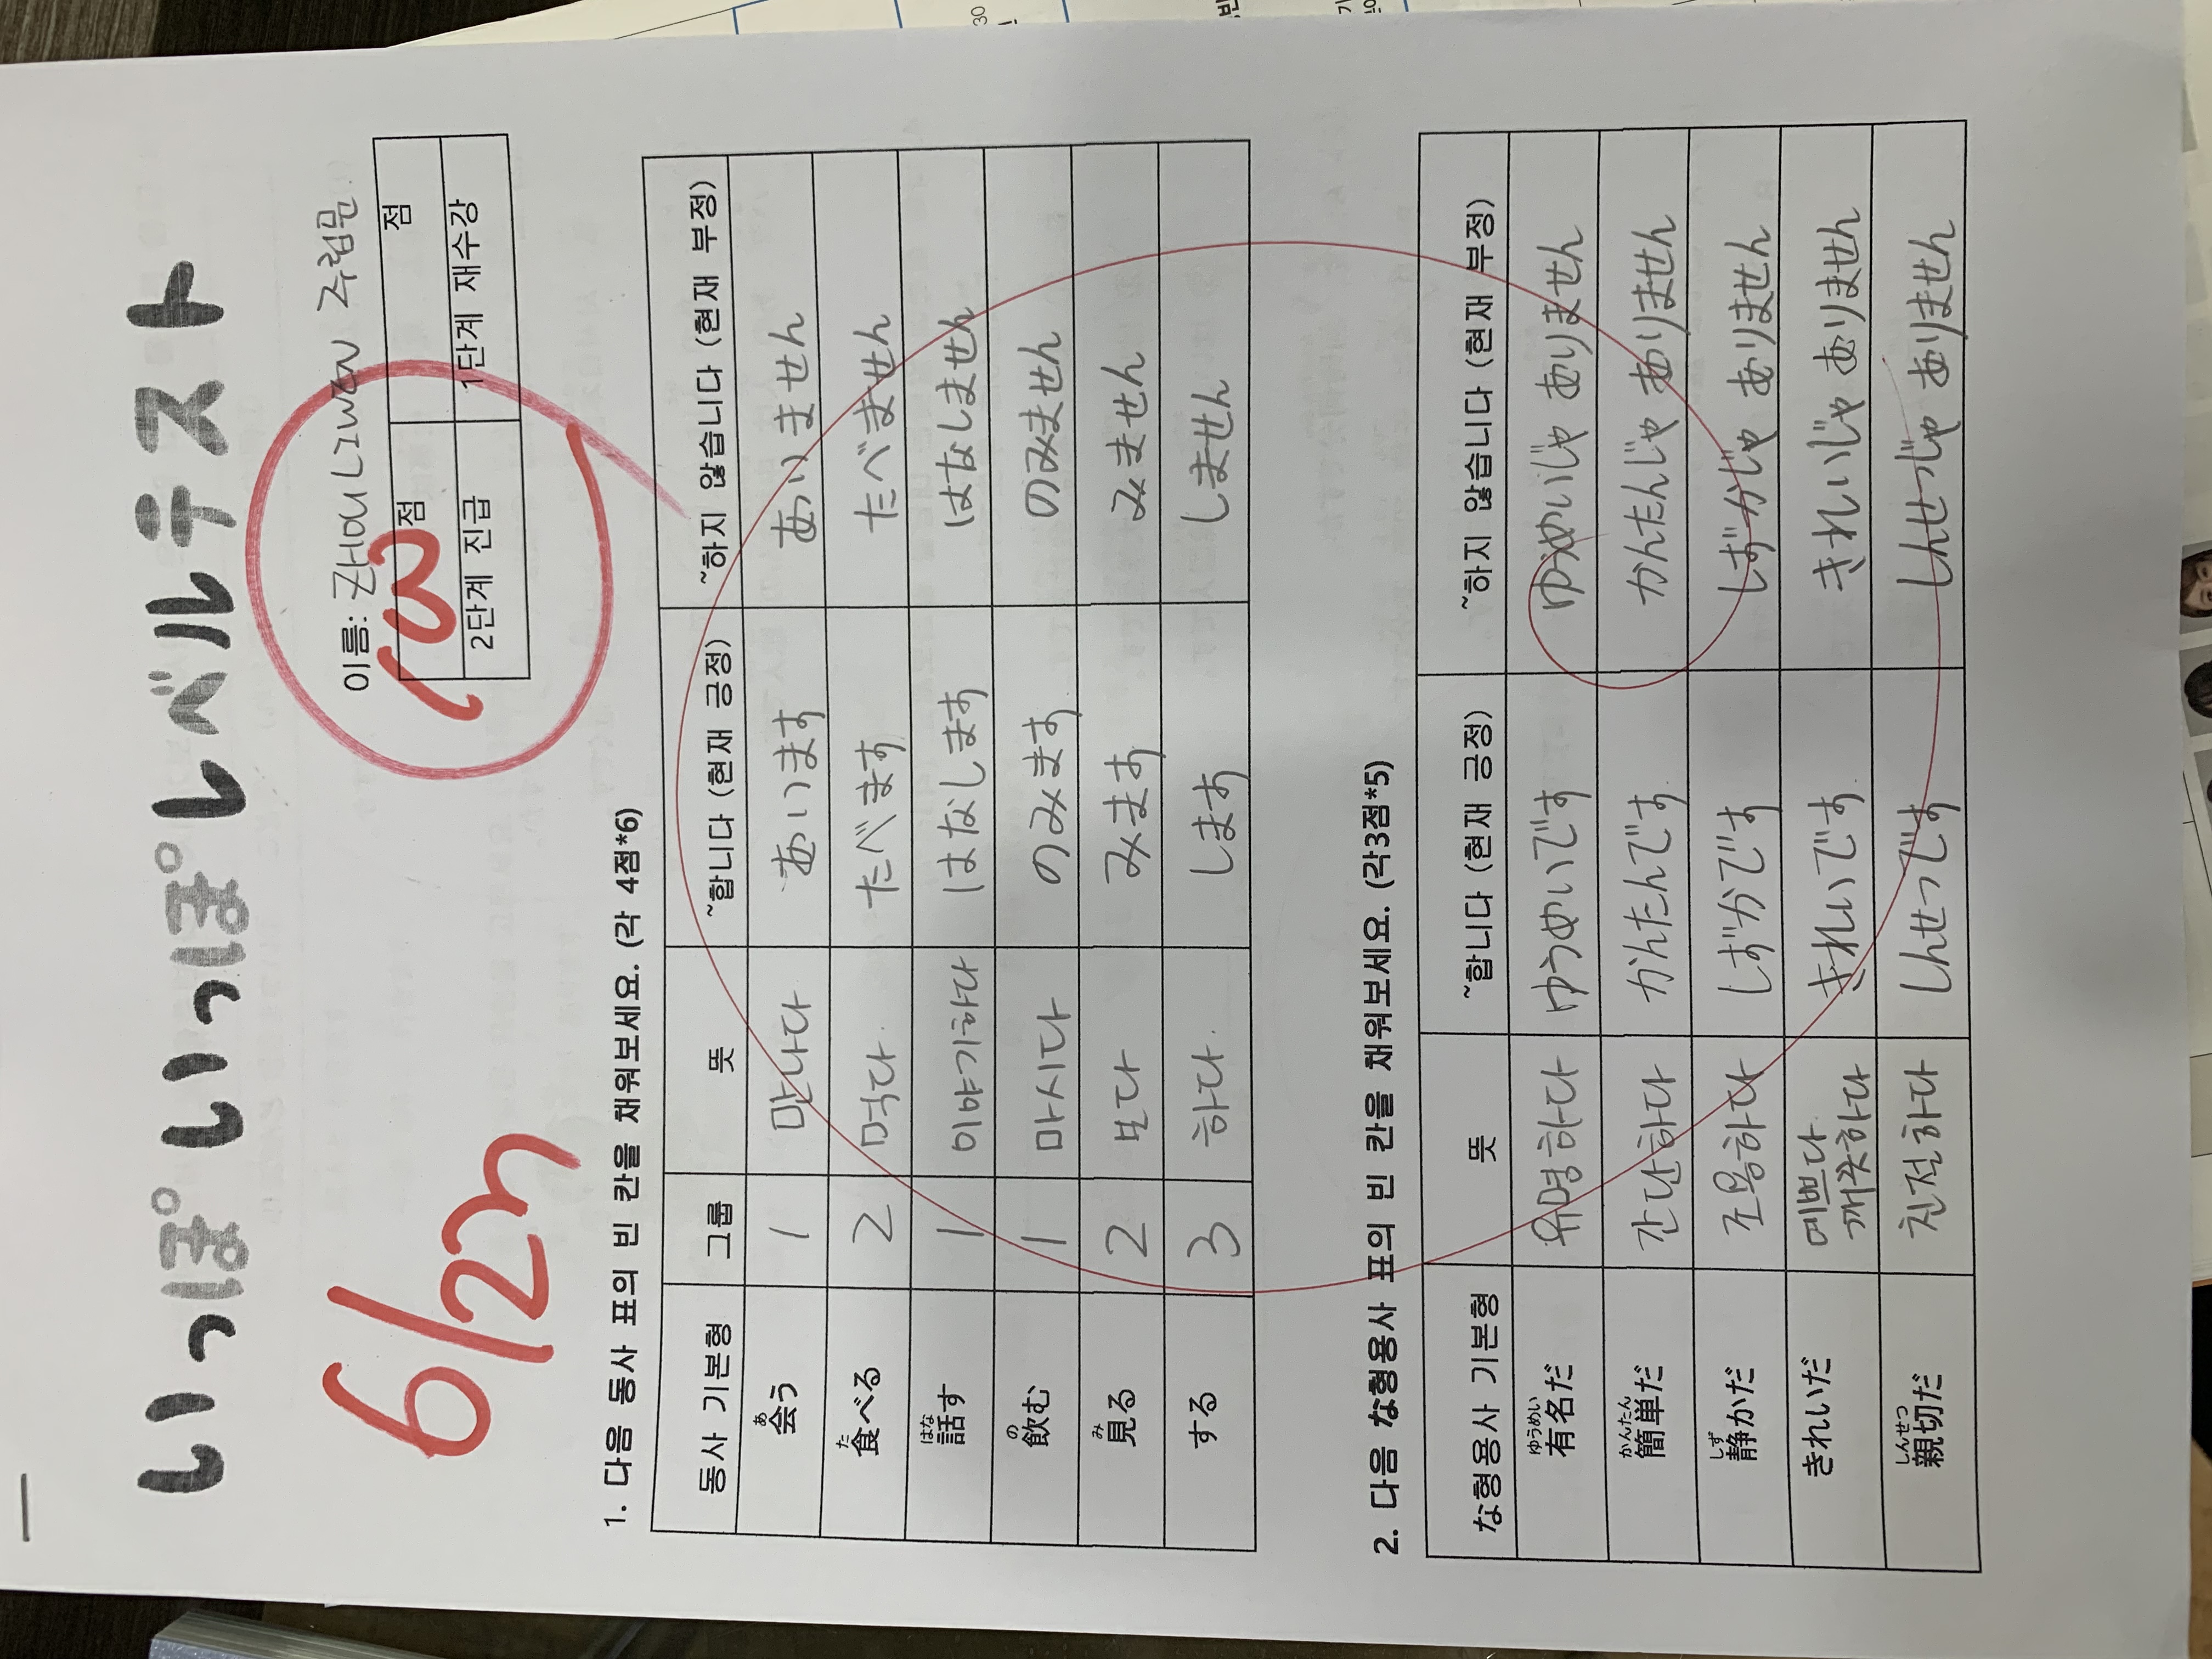 いっぽ いっぽ レベルテスト
6/27
이름: ZHOU LIWEN 주립문
100점 점
2단계 진급 1단계 재수강
1. 다음 동사 표의 빈 칸을 채워보세요. (각 4점*6)
동사 기본형 그룹 뜻 ~합니다 (현재 긍정) ~하지 않습니다 (현재 부정)
会う あ 1 만나다 あいます あいません
食べる た 2 먹다 たべます たべません
話す はな 1 이야기하다 はなします はなしません
飲む の 1 마시다 のみます のみません
見る み 2 보다 みます みません
する 3 하다 します しません
2. 다음 な형용사 표의 빈 칸을 채워보세요. (각3점*5)
な형용사 기본형 뜻 ~합니다 (현재 긍정) ~하지 않습니다 (현재 부정)
有名だ ゆうめい 유명하다 ゆうめいです ゆうめいじゃ ありません
簡単だ かんたん 간단하다 かんたんです かんたんじゃ ありません
静かだ しず 조용하다 しずかです しずかじゃ ありません
きれいだ 예쁘다 깨끗하다 きれいです きれいじゃ ありません
親切だ しんせつ 친절하다 しんせつです しんせつじゃ ありません